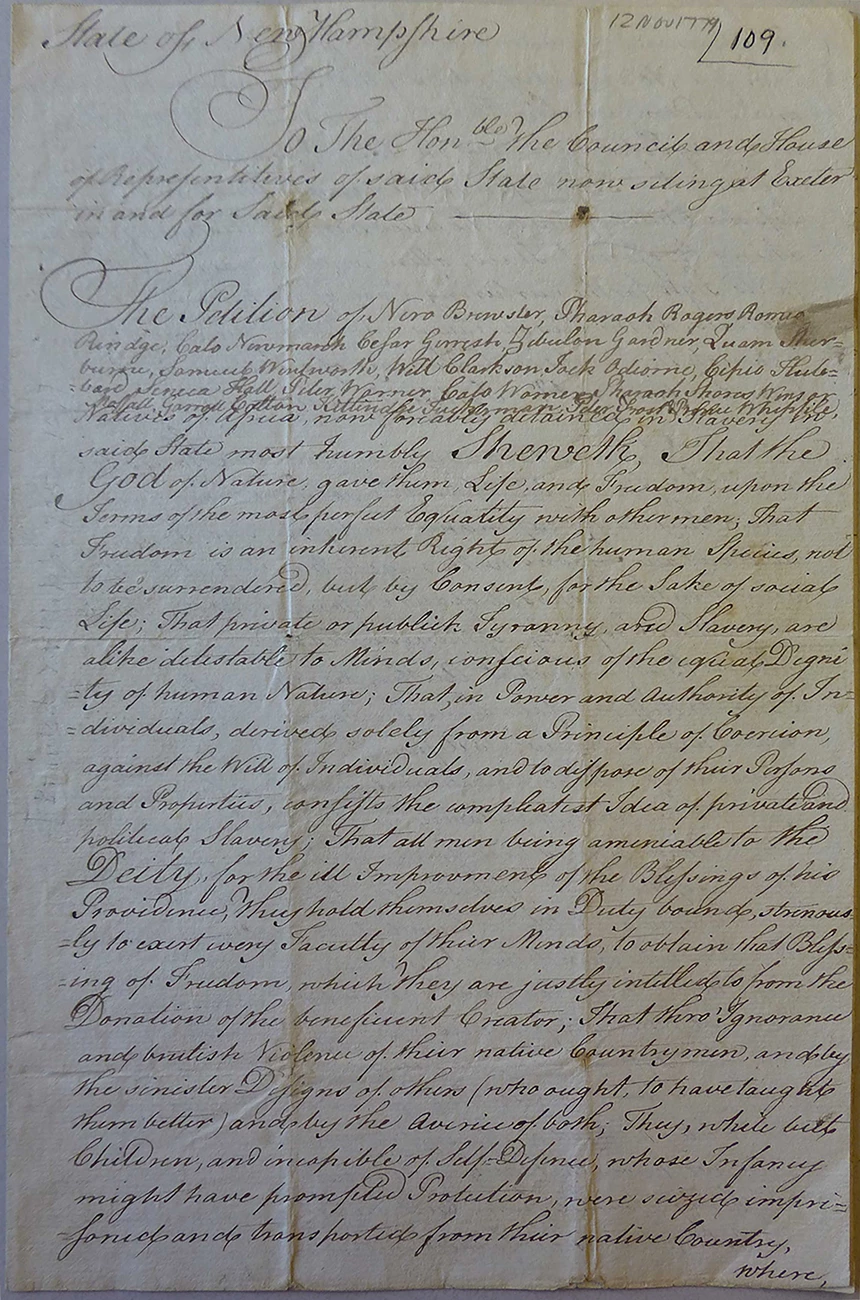 State of New Hampshire
12 Nov 1779
109.
To The Honble The Council and House
of Representitives of said State now siting at Exeter
in and for Said State
The Petition of Nero Brewster, Pharaoh Rogers Romeo
Rindge, Cato Newmarch Cesar Gerrish Zebulon Gardner, Quam Sher-
burne, Samuel Wentworth, Will Clarkson Jack Odiorne, Cipio Hub=
=bard Seneca Hall, Peter Warner, Cato Warner, Pharaoh Shores, Winsor
Moffatt Garrott Cotton Kittindge Tuckerman Peter Frost Prince Whipple,
Natives of Africa, now forceably detained in Slavery in
said State most humbly Sheweth, That the
God of Nature, gave them, Life, and Freedom, upon the
Terms of the most perfect Equality with other men; That
Freedom is an inherent Right of the human Species, not
to be surrendered, but by Consent, for the Sake of social
Life; That private or publick Tyranny, and Slavery, are
alike detestable to Minds, conscious of the equal Digni
=ty of human Nature; That, in Power and Authority of In=
=dividuals, derived solely from a Principle of Coercion,
against the Will of Individuals, and to dispose of their Persons
and Properties, consists the compleatest Idea of private and
political Slavery; That all men being ameniable to the
Deity, for the ill Improvment of the Blessings of his
Providence, They hold themselves in Duty bound, strenous
=ly to exert every Faculty of their Minds, to obtain that Bless=
=ing of Freedom, which they are justly intitled to from the
Donation of the beneficent Creator; That thro' Ignorance
and brutish Violence of their native Countrymen, and by
the sinister Designs of others (who ought, to have taught
them better) and by the Avarice of both; They, while but
Children, and incapible of Self-Defence, whose Infancy
might have prompted Protection, were seized impri=
=soned and transported from their native Country,
where,